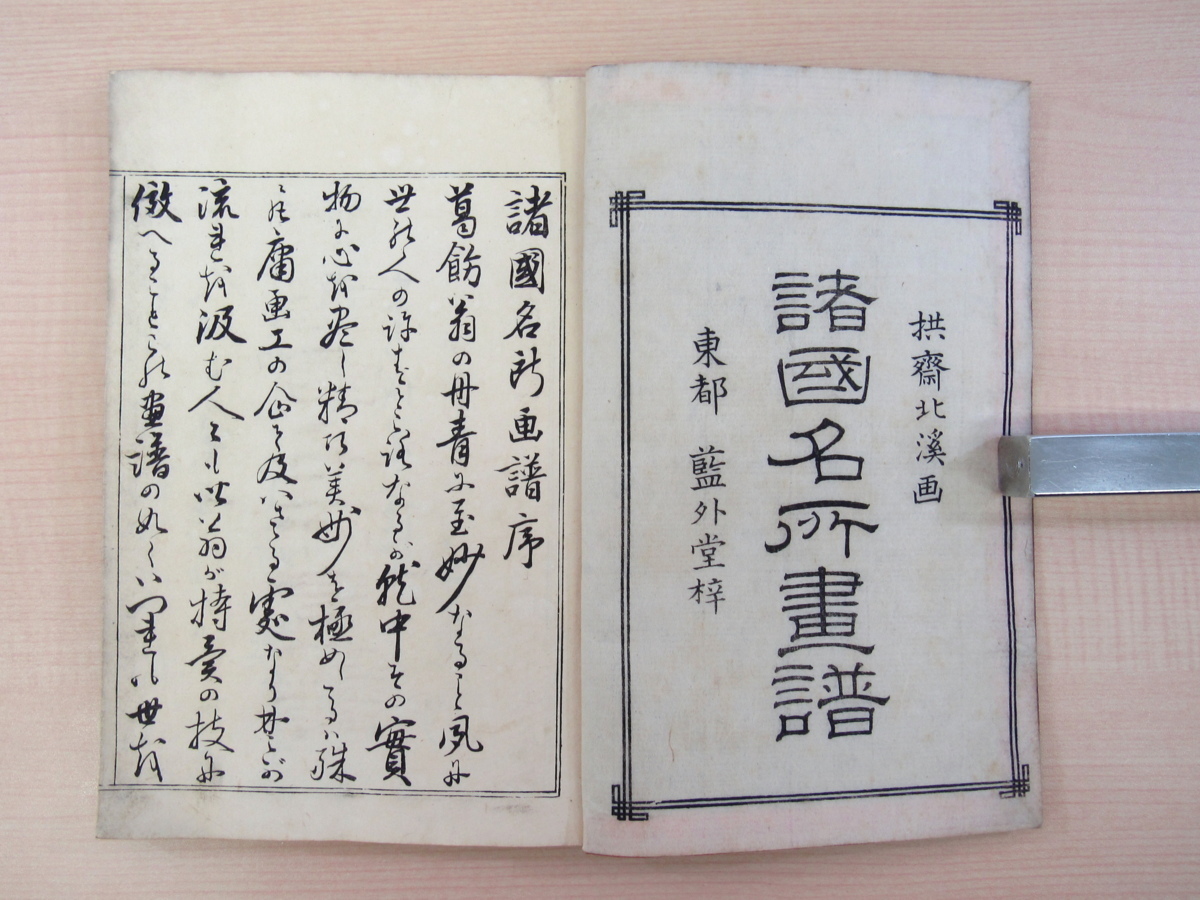 拱齋北溪画
諸國名所畫譜
東都 藍外堂梓
諸國名所画譜序
葛飾翁の丹青に至妙なること夙に
世の人の許すところなるが就中その實
物に心を尽し精巧美妙を極めしるハ殊
に庸画工の企て及バざる處なりされど
流れを汲む人々も此翁が持
の技に
倣へることこの畫譜の如くいづれも世を